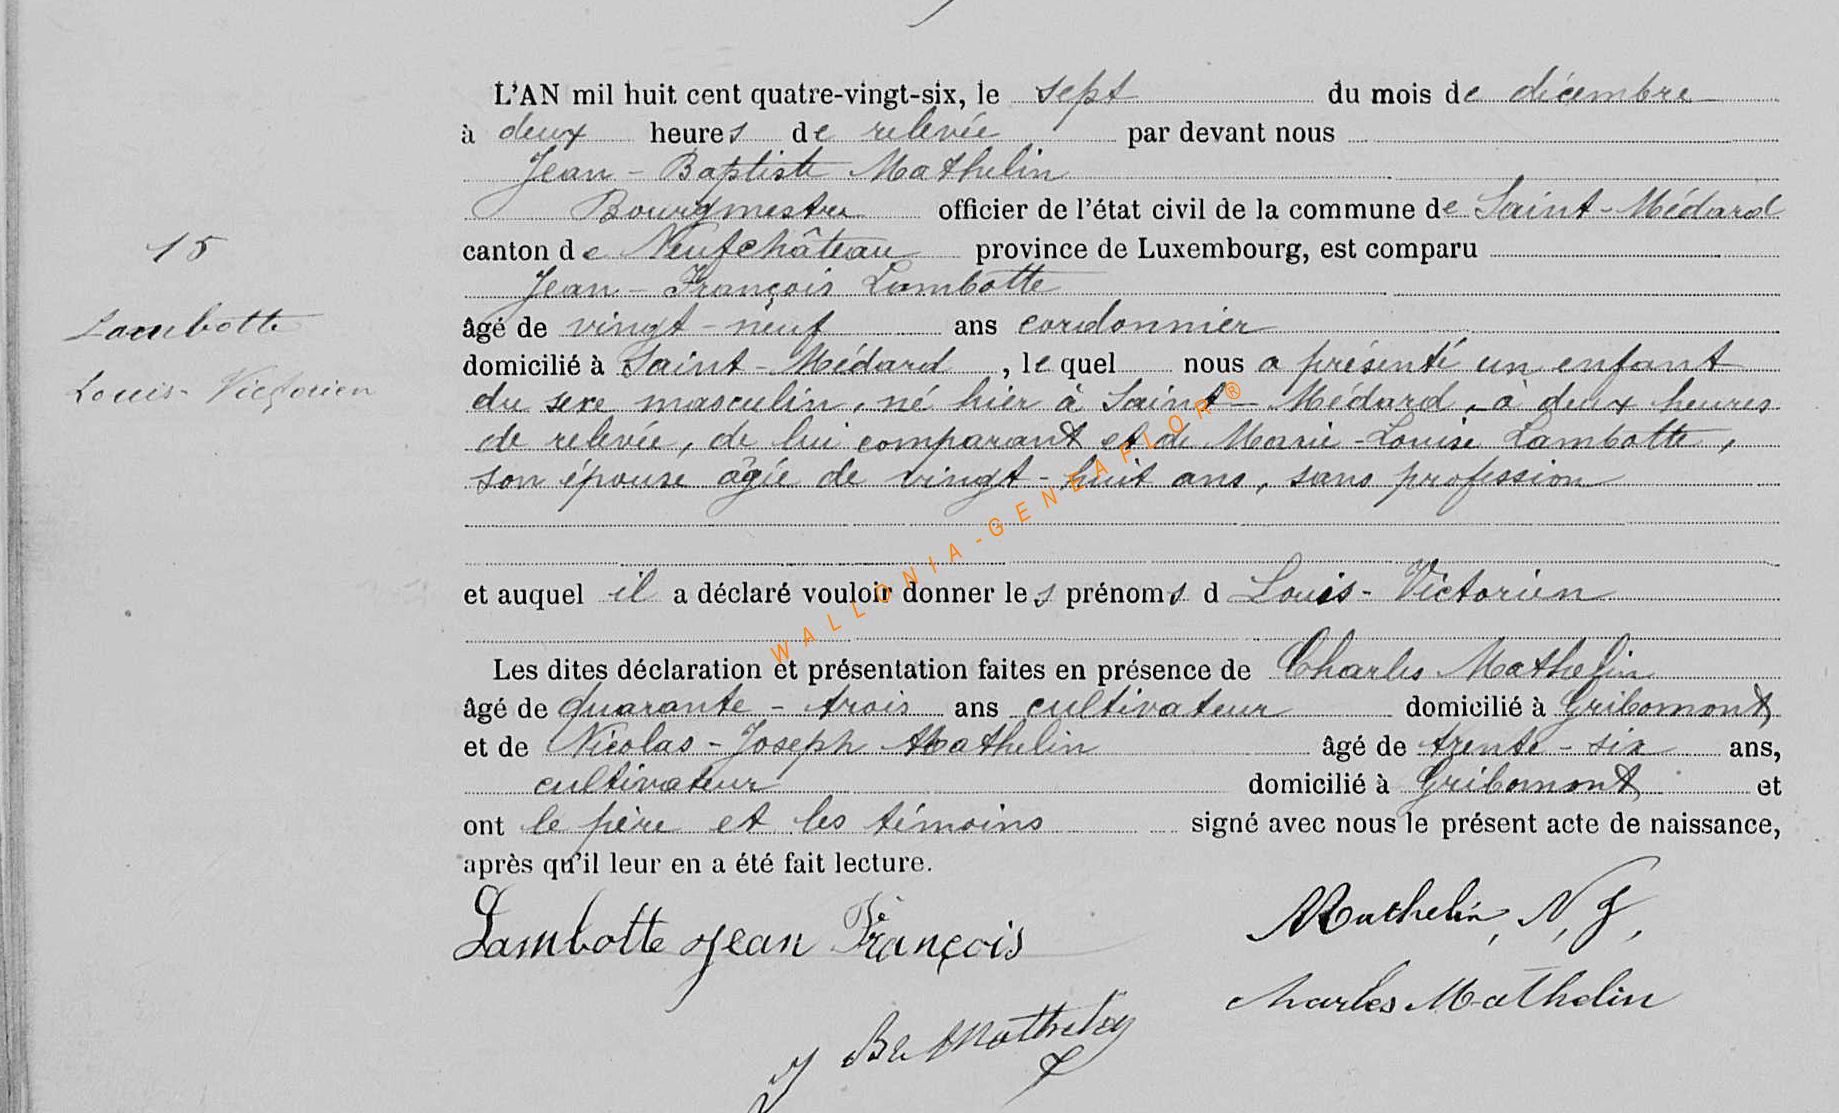 L'AN mil huit cent quatre-vingt-six, le sept du mois de décembre
à deux heures de relevée par devant nous
Jean-Baptiste Mathelin
Bourgmestre officier de l'état civil de la commune de Saint-Médard
15
canton de Neufchâteau province de Luxembourg, est comparu
Jean-François Lambotte
Lambotte
âgé de vingt-neuf ans cordonnier
domicilié à Saint-Médard, lequel nous a présenté un enfant
Louis-Victorien
du sexe masculin, né hier à Saint-Médard, à deux heures
de relevée, de lui comparant et de Marie-Louise Lambotte,
son épouse âgée de vingt-huit ans, sans profession
WALLONIA-GENEAFLOR®
et auquel il a déclaré vouloir donner les prénoms d Louis-Victorien
Les dites déclaration et présentation faites en présence de Charles Mathelin
âgé de quarante-trois ans cultivateur domicilié à Gribomont
et de Nicolas-Joseph Mathelin âgé de trente-six ans,
cultivateur domicilié à Gribomont et
ont le père et les témoins signé avec nous le présent acte de naissance,
après qu'il leur en a été fait lecture.
Lambotte Jean François
Mathelin, N, J,
Charles Mathelin
J Bte Mathelin